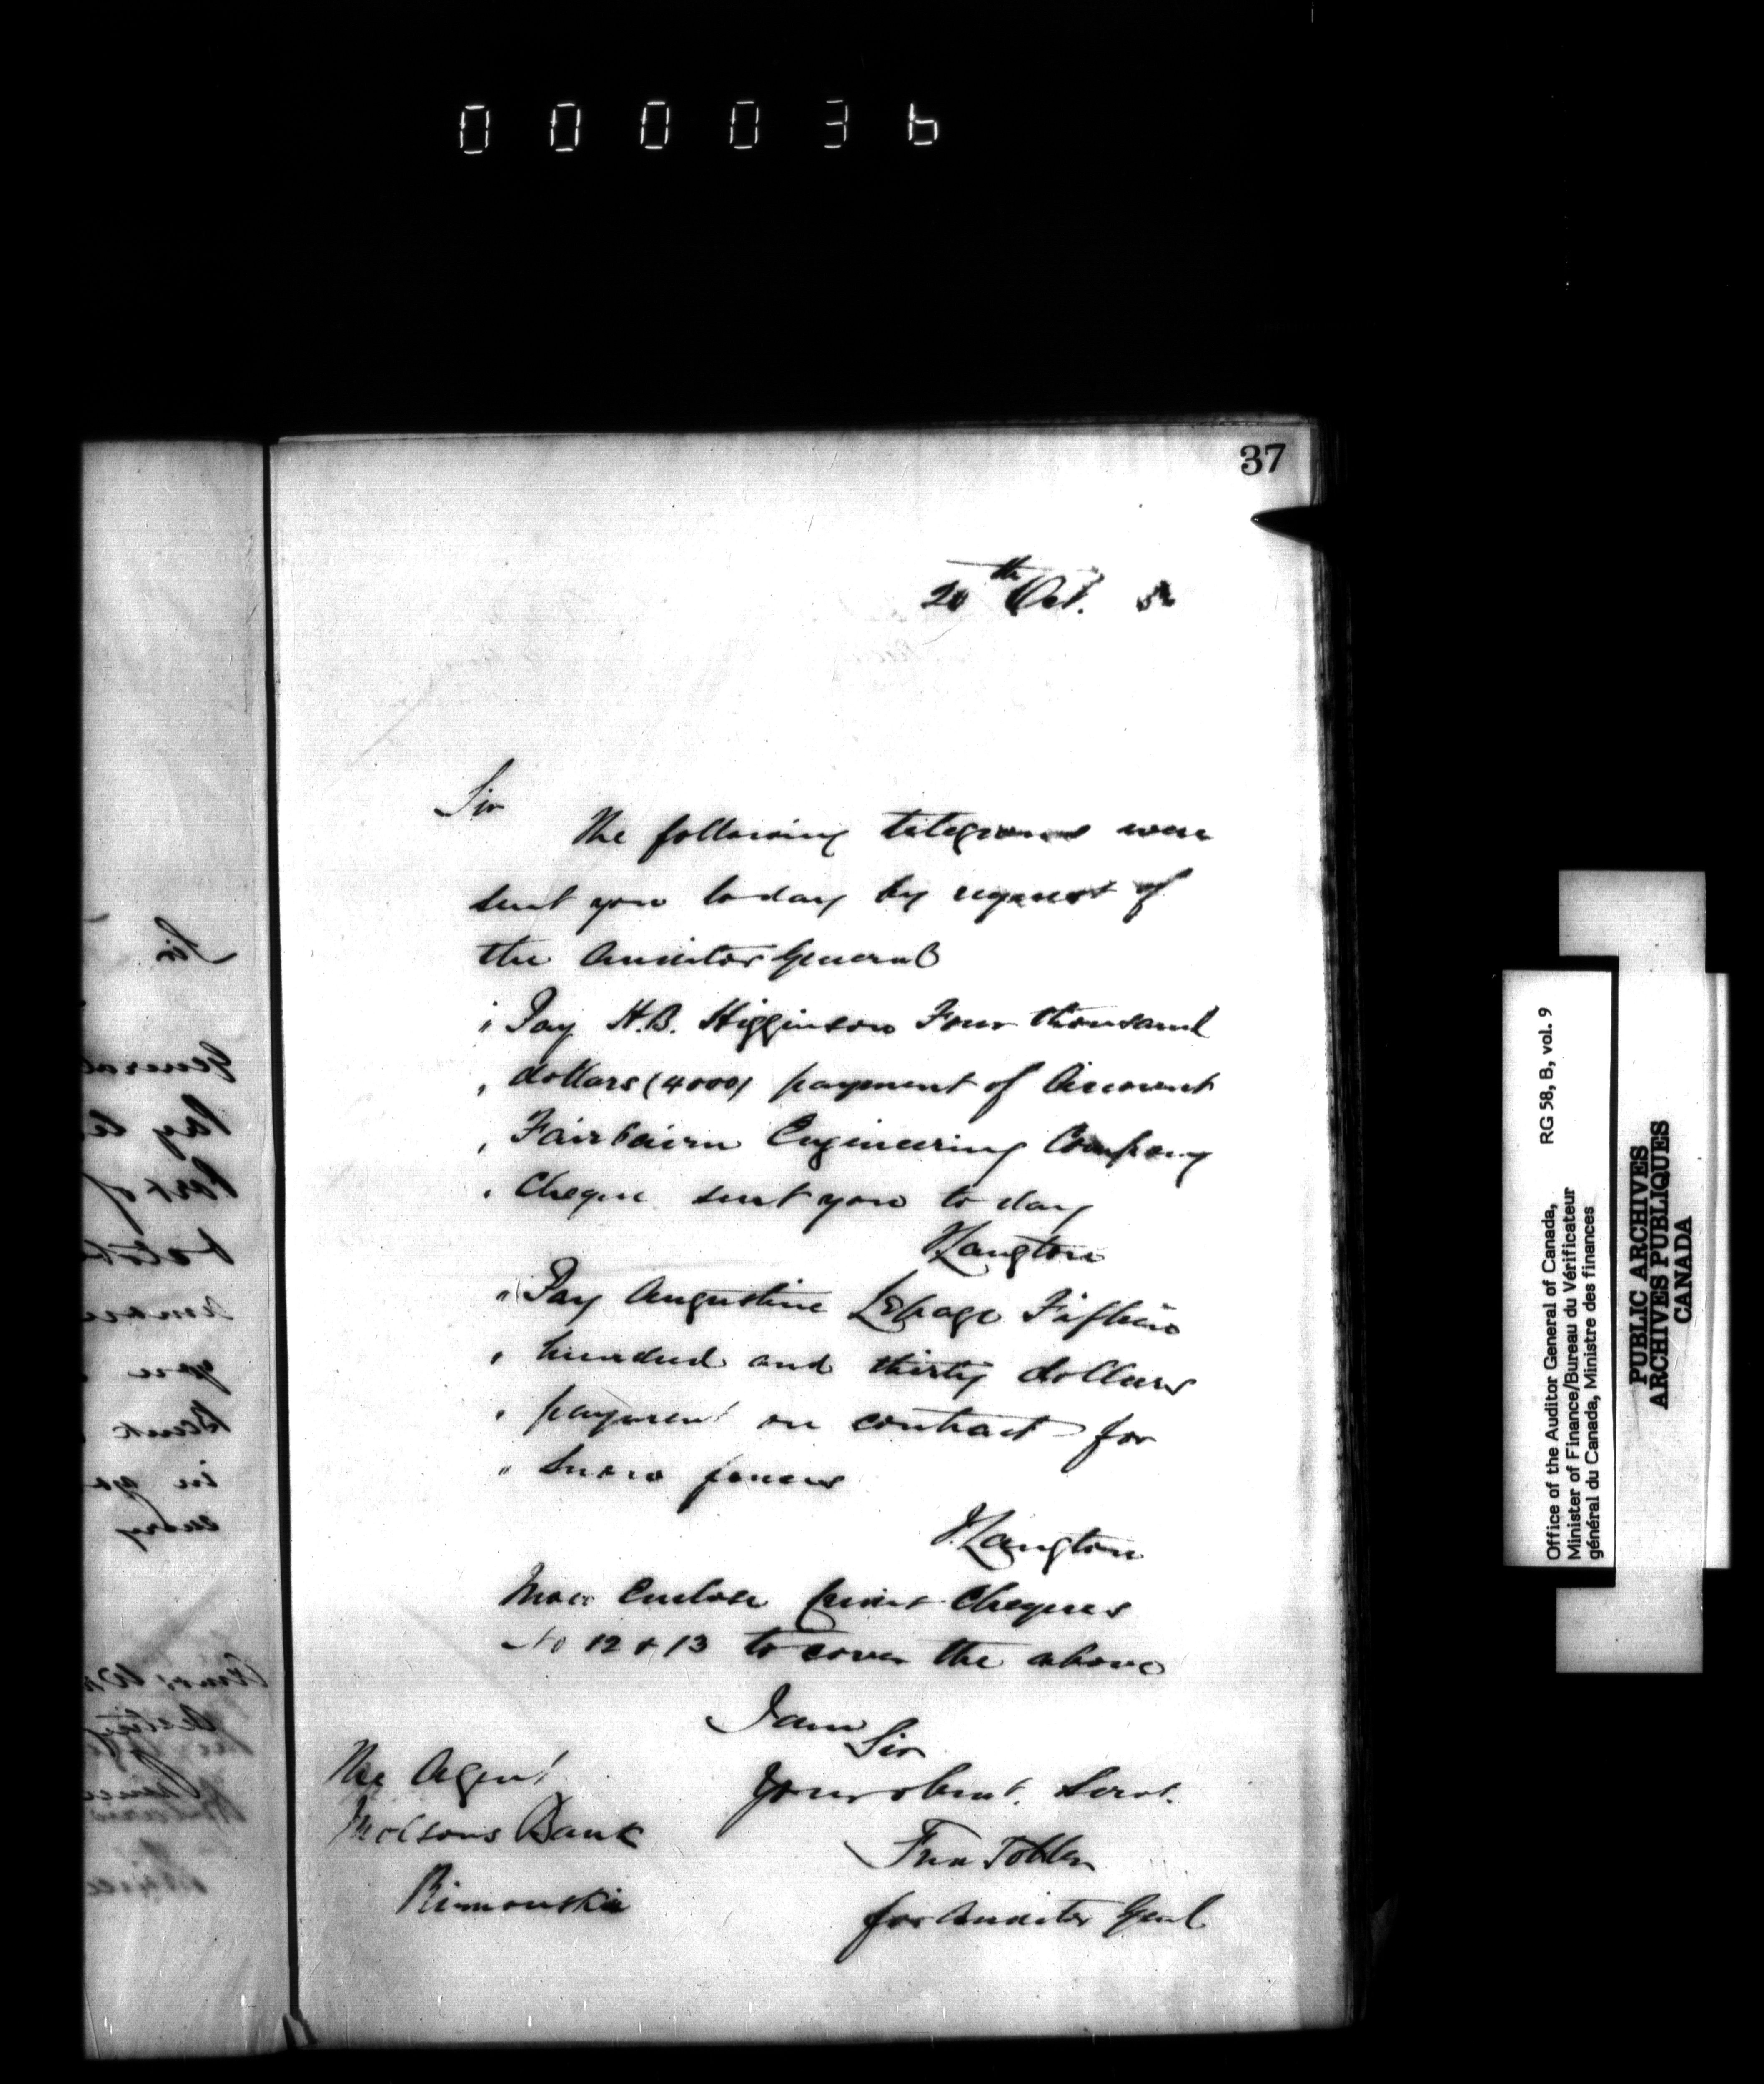 000036
37
20th Oct.
Sir
The following telegrams were
sent you today by request of
the Auditor General
" Pay H.B. Higginson Four thousand
" dollars (4000) payment of Account
" Fairbairn Engineering Company
" Cheque sent you to day
J Langton
" Pay Augustine Lepage Fifteen
" hundred and thirty dollars
" payment on contract for
" Snow fences
J. Langton
enclose Cheques
No 12 & 13 to cover the above
I am
Sir
Your obent. Servt.
The Agent
Molsons Bank
Rimouski
for Auditor Genl
Sir
General
Pay
Office of the Auditor General of Canada, RG 58, B, vol. 9
Minister of Finance/Bureau du Vérificateur
général du Canada, Ministre des finances
PUBLIC ARCHIVES
ARCHIVES PUBLIQUES
CANADA